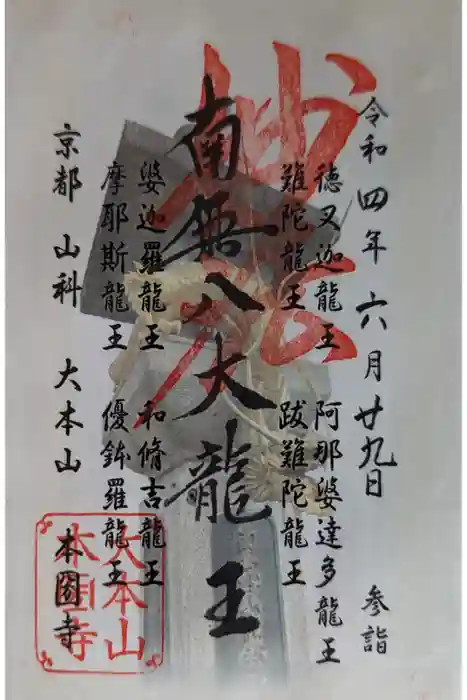 令和四年六月廿九日 参詣
徳叉迦龍王 阿那婆達多龍王
難陀龍王 跋難陀龍王
妙法
南無八大龍王
婆迦羅龍王 和脩吉龍王
摩耶斯龍王 優鉢羅龍王
京都 山科 大本山 本圀寺
大本山
本圀寺